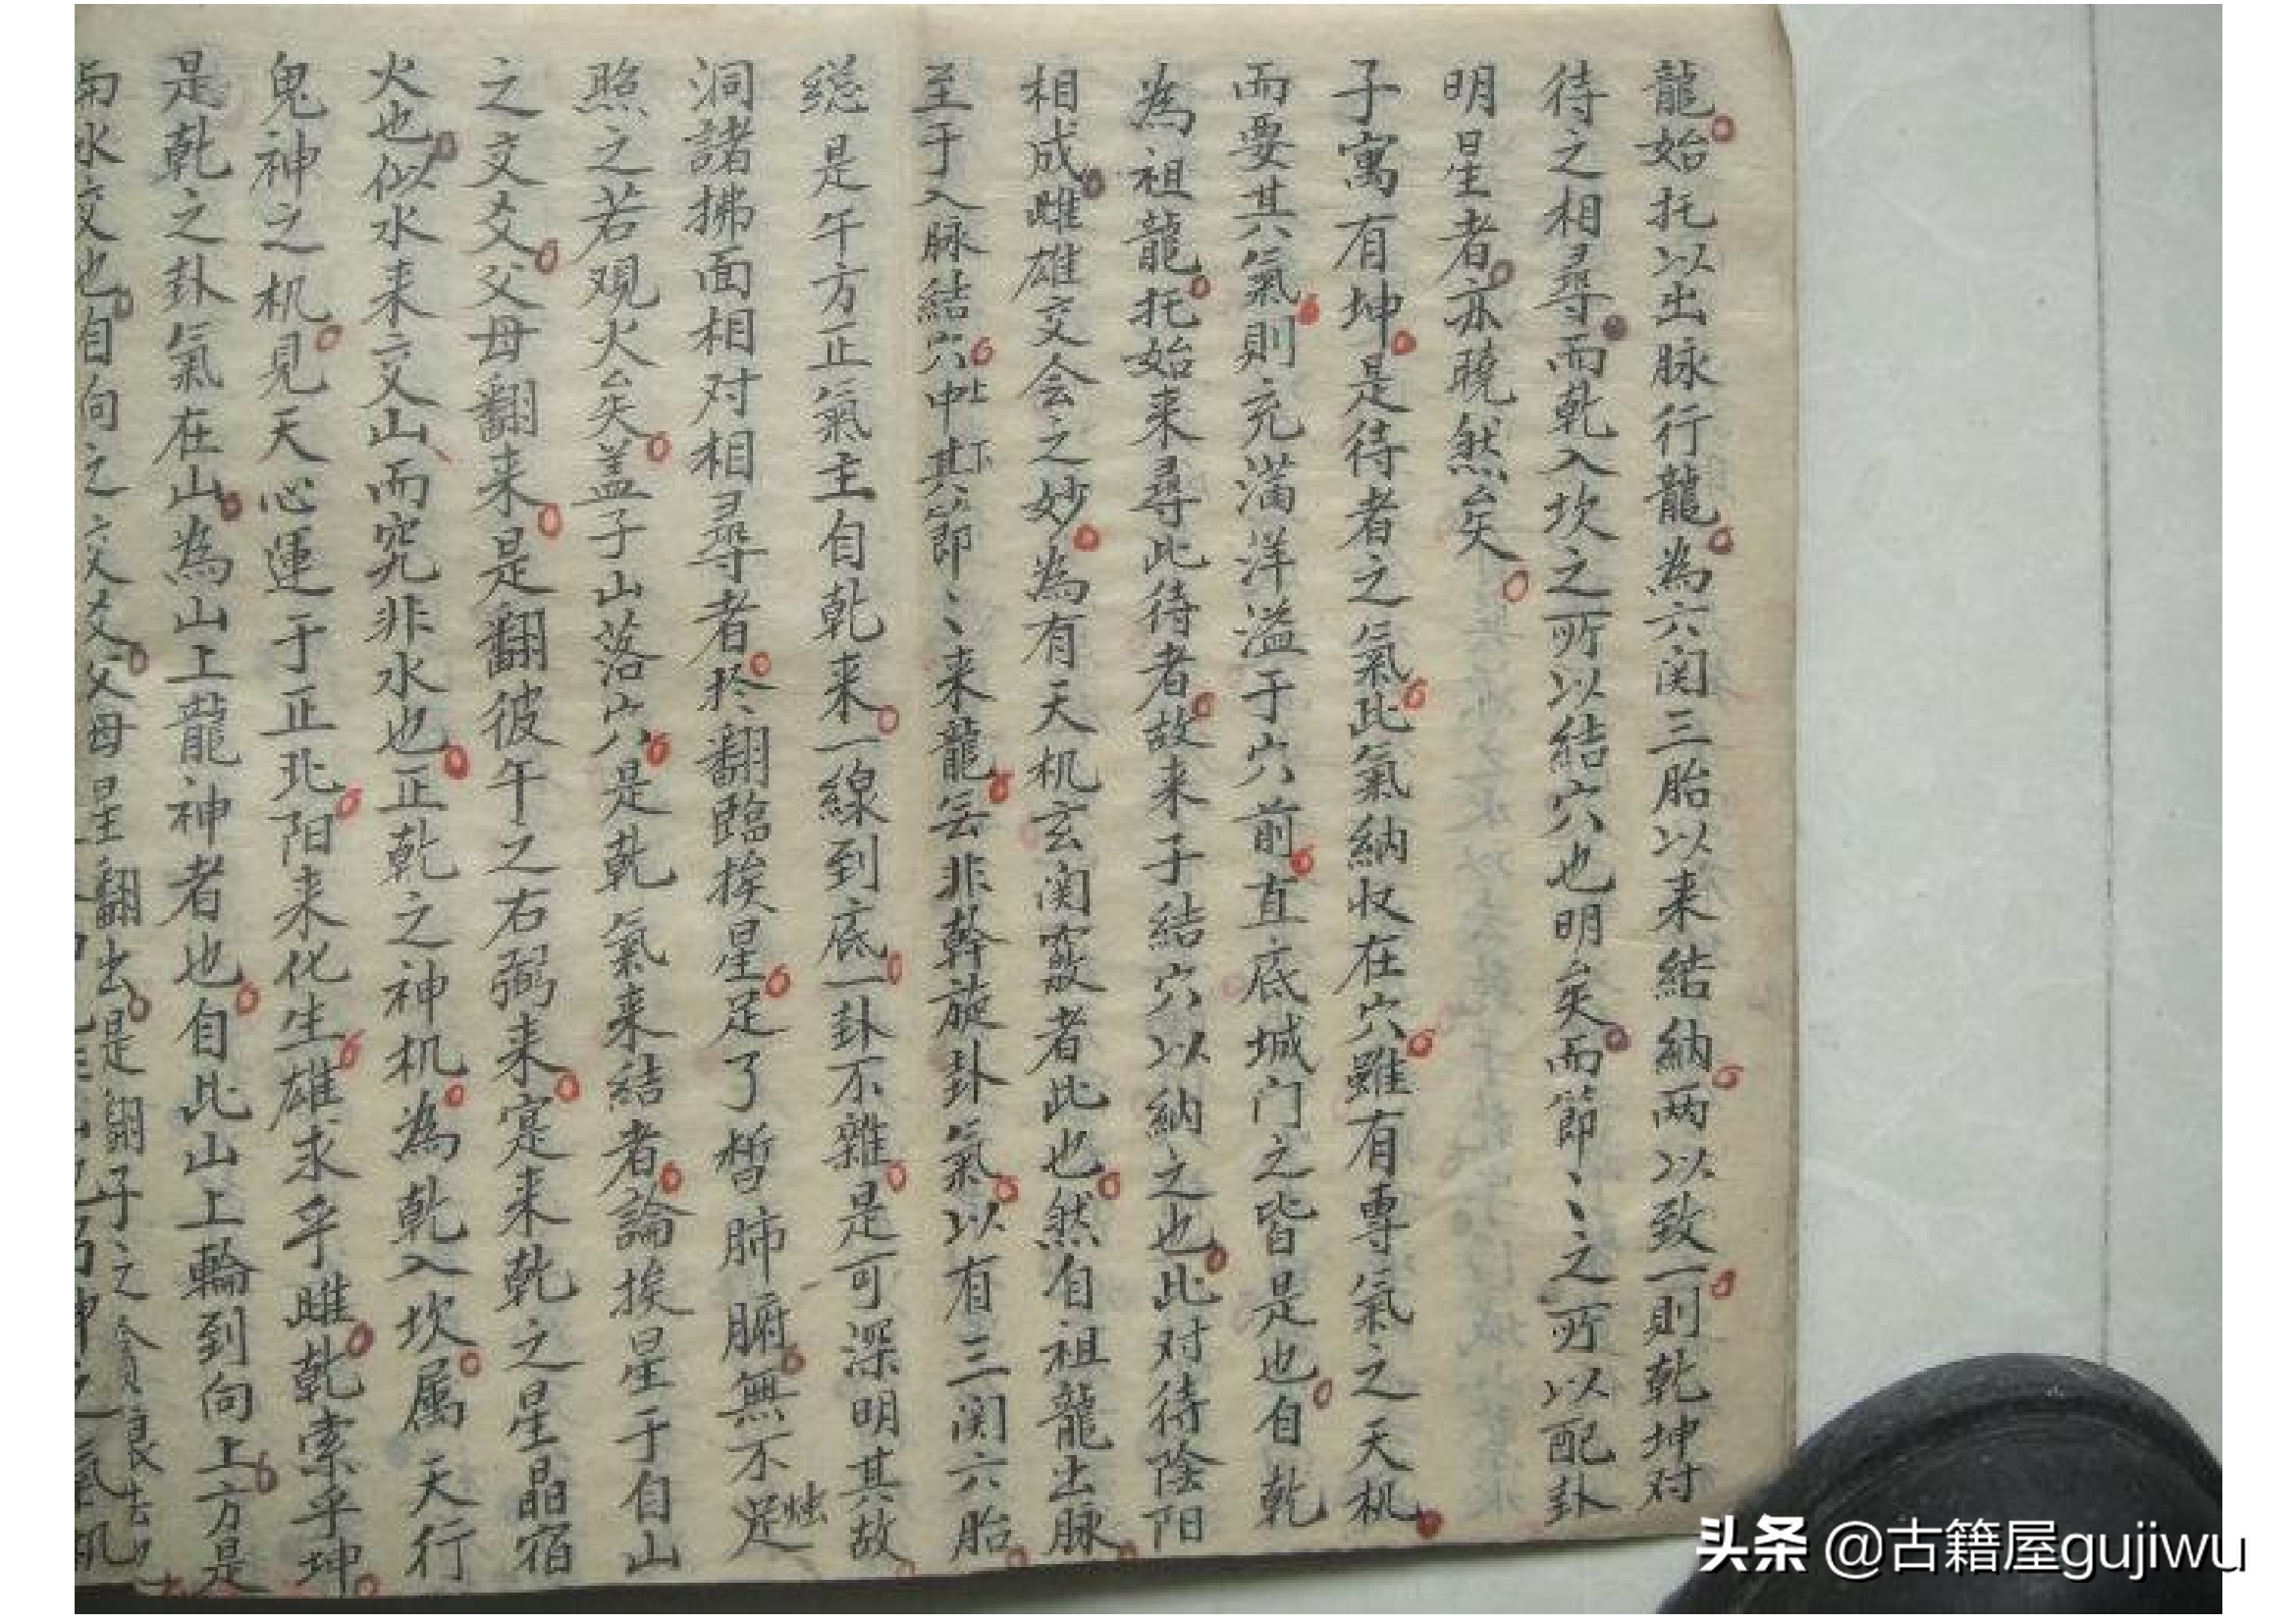 龍始托以出脉行龍為六関三胎以来結納两以致一則乾坤对
待之相尋而乾入坎之所以結穴也明矣而節〻之所以配卦
明星者亦曉然矣
子寓有坤是待者之氣此氣納收在穴雖有專氣之天机
而要其氣則充滿洋溢于穴前直底城门之皆是也自乾
為祖龍托始来尋此待者故来子結穴以納之也此对待陰阳
相成雌雄交会之妙為有天机玄関竅者此也然自祖龍出脉
至于入脉結穴中其節〻来龍無非幹旋卦氣以有三関六胎
總是午方正氣主自乾来一線到底一卦不雜是可深明其故
洞諸拂面相对相尋者於翻臨挨星足了皙肺腑無不足
照之若观火矣盖子山落穴是乾氣来結者論挨星于自山
之交爻父母翻来是翻彼午之右弼来寔来乾之星晶宿
火也似水来交山而究非水也正乾之神机為乾入坎属天行
鬼神之机見天心運于正北阳来化生雄求乎雌乾索乎坤
是乾之卦氣在山為山上龍神者也自此山上輪到向上方是
南水交也自向之交爻父母星翻出是翻子之
头条 @古籍屋gujiwu